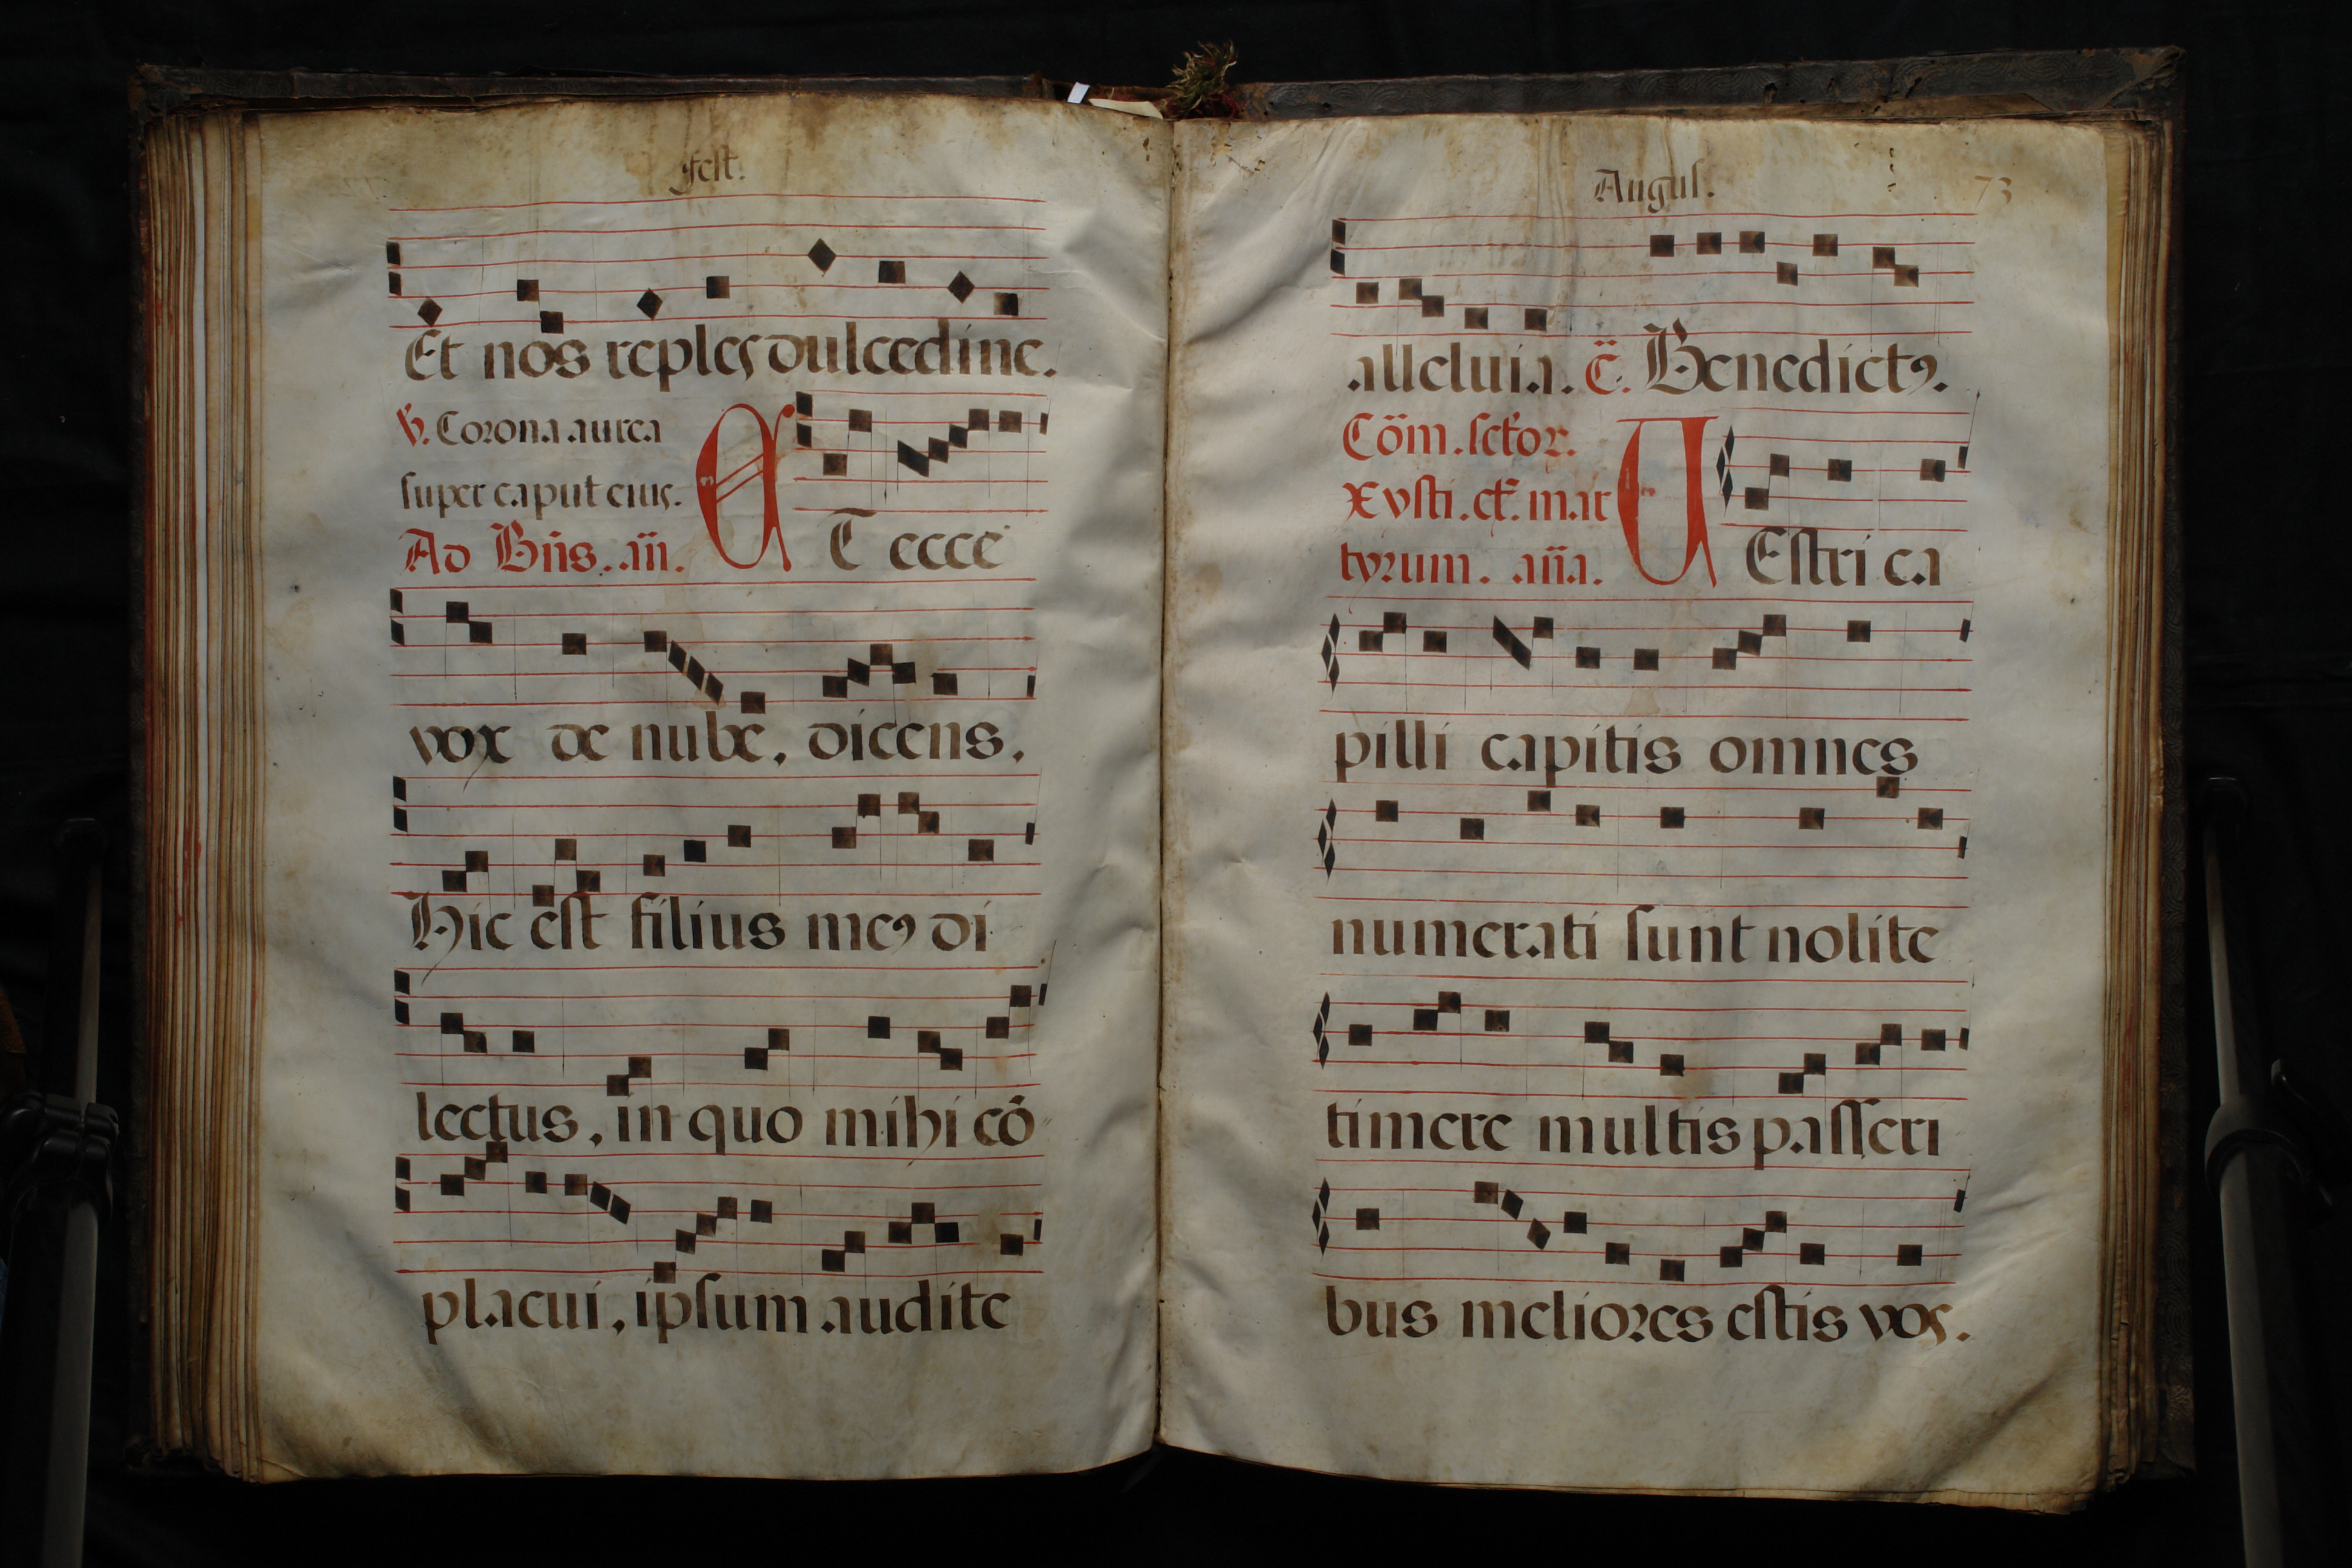 fest.
Et nos reples dulcedine.
℣. Corona aurea
super caput eius.
Ad Bñs. añ.
ET ecce
vox de nube, dicens,
Hic est filius meꝰ di
lectus, in quo mihi cō
placui, ipsum audite
Augus. 73
alleluia. c̃. Benedictꝰ.
Cōm. sctor.
Xysti. et mar
tyrum. aña.
VEstri ca
pilli capitis omnes
numerati sunt nolite
timere multis passeri
bus meliores estis vos.